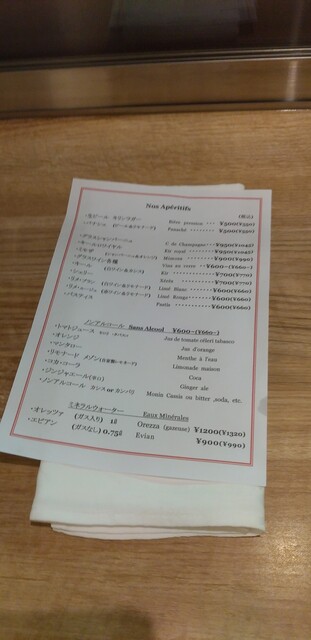 Nos Apéritifs
(税込)
・生ビール キリンラガー Bière pression ・・・ ¥500(550)
・パナシェ Panaché ・・・・ ¥500(550)
・グラスシャンパーニュ C. de Champagne・・ ¥950(1045)
・キールロワイヤル Kir royal ・・・・ ¥950(1045)
・ミモザ Mimosa ・・・・ ¥900(990)
・グラスワイン各種 Vins au verre ・・¥600~(660~)
・キール Kir ・・・・・ ¥700(770)
・シェリー Xérès ・・・・ ¥700(770)
Lillet Blanc ・・・・ ¥600(660)
Lillet Rouge・・・・ ¥600(660)
・パスティス Pastis ・・・・・ ¥600(660)
ノンアルコール Sans Alcool ¥600~(660~)
・トマトジュース Jus de tomate céleri tabasco
・オレンジ Jus d'orange
・マンタロー Menthe à l'eau
・リモナード メゾン Limonade maison
・コカ・コーラ Coca
・ジンジャエール(辛口) Ginger ale
・ノンアルコール カシス or カンパリ Monin Cassis ou bitter ,soda, etc.
ミネラルウォーター Eaux Minérales
・オレッツァ (ガス入り) 1ℓ Orezza (gazeuse) ¥1200(¥1320)
・エビアン (ガスなし) 0.75ℓ Evian ¥900(¥990)